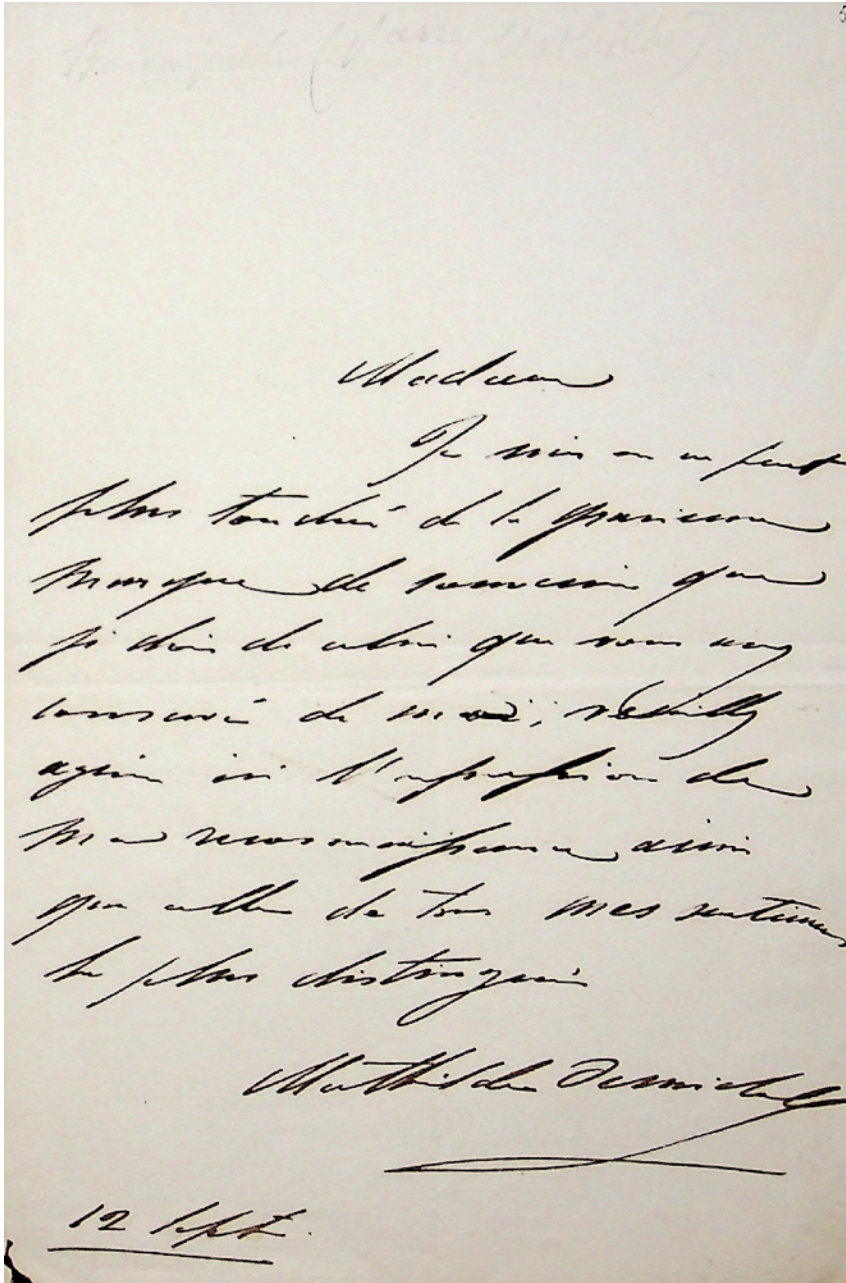 Madame
Je suis on ne peut
plus touchée de la gracieuse
marque de souvenir que
je dois de celui que vous avez
conservé de moi; veuillez
agréer ici l'expression de
ma reconnaissance ainsi
que celle de tous mes sentimens
les plus distingués
Mathilde Demidoff
12 Sept.